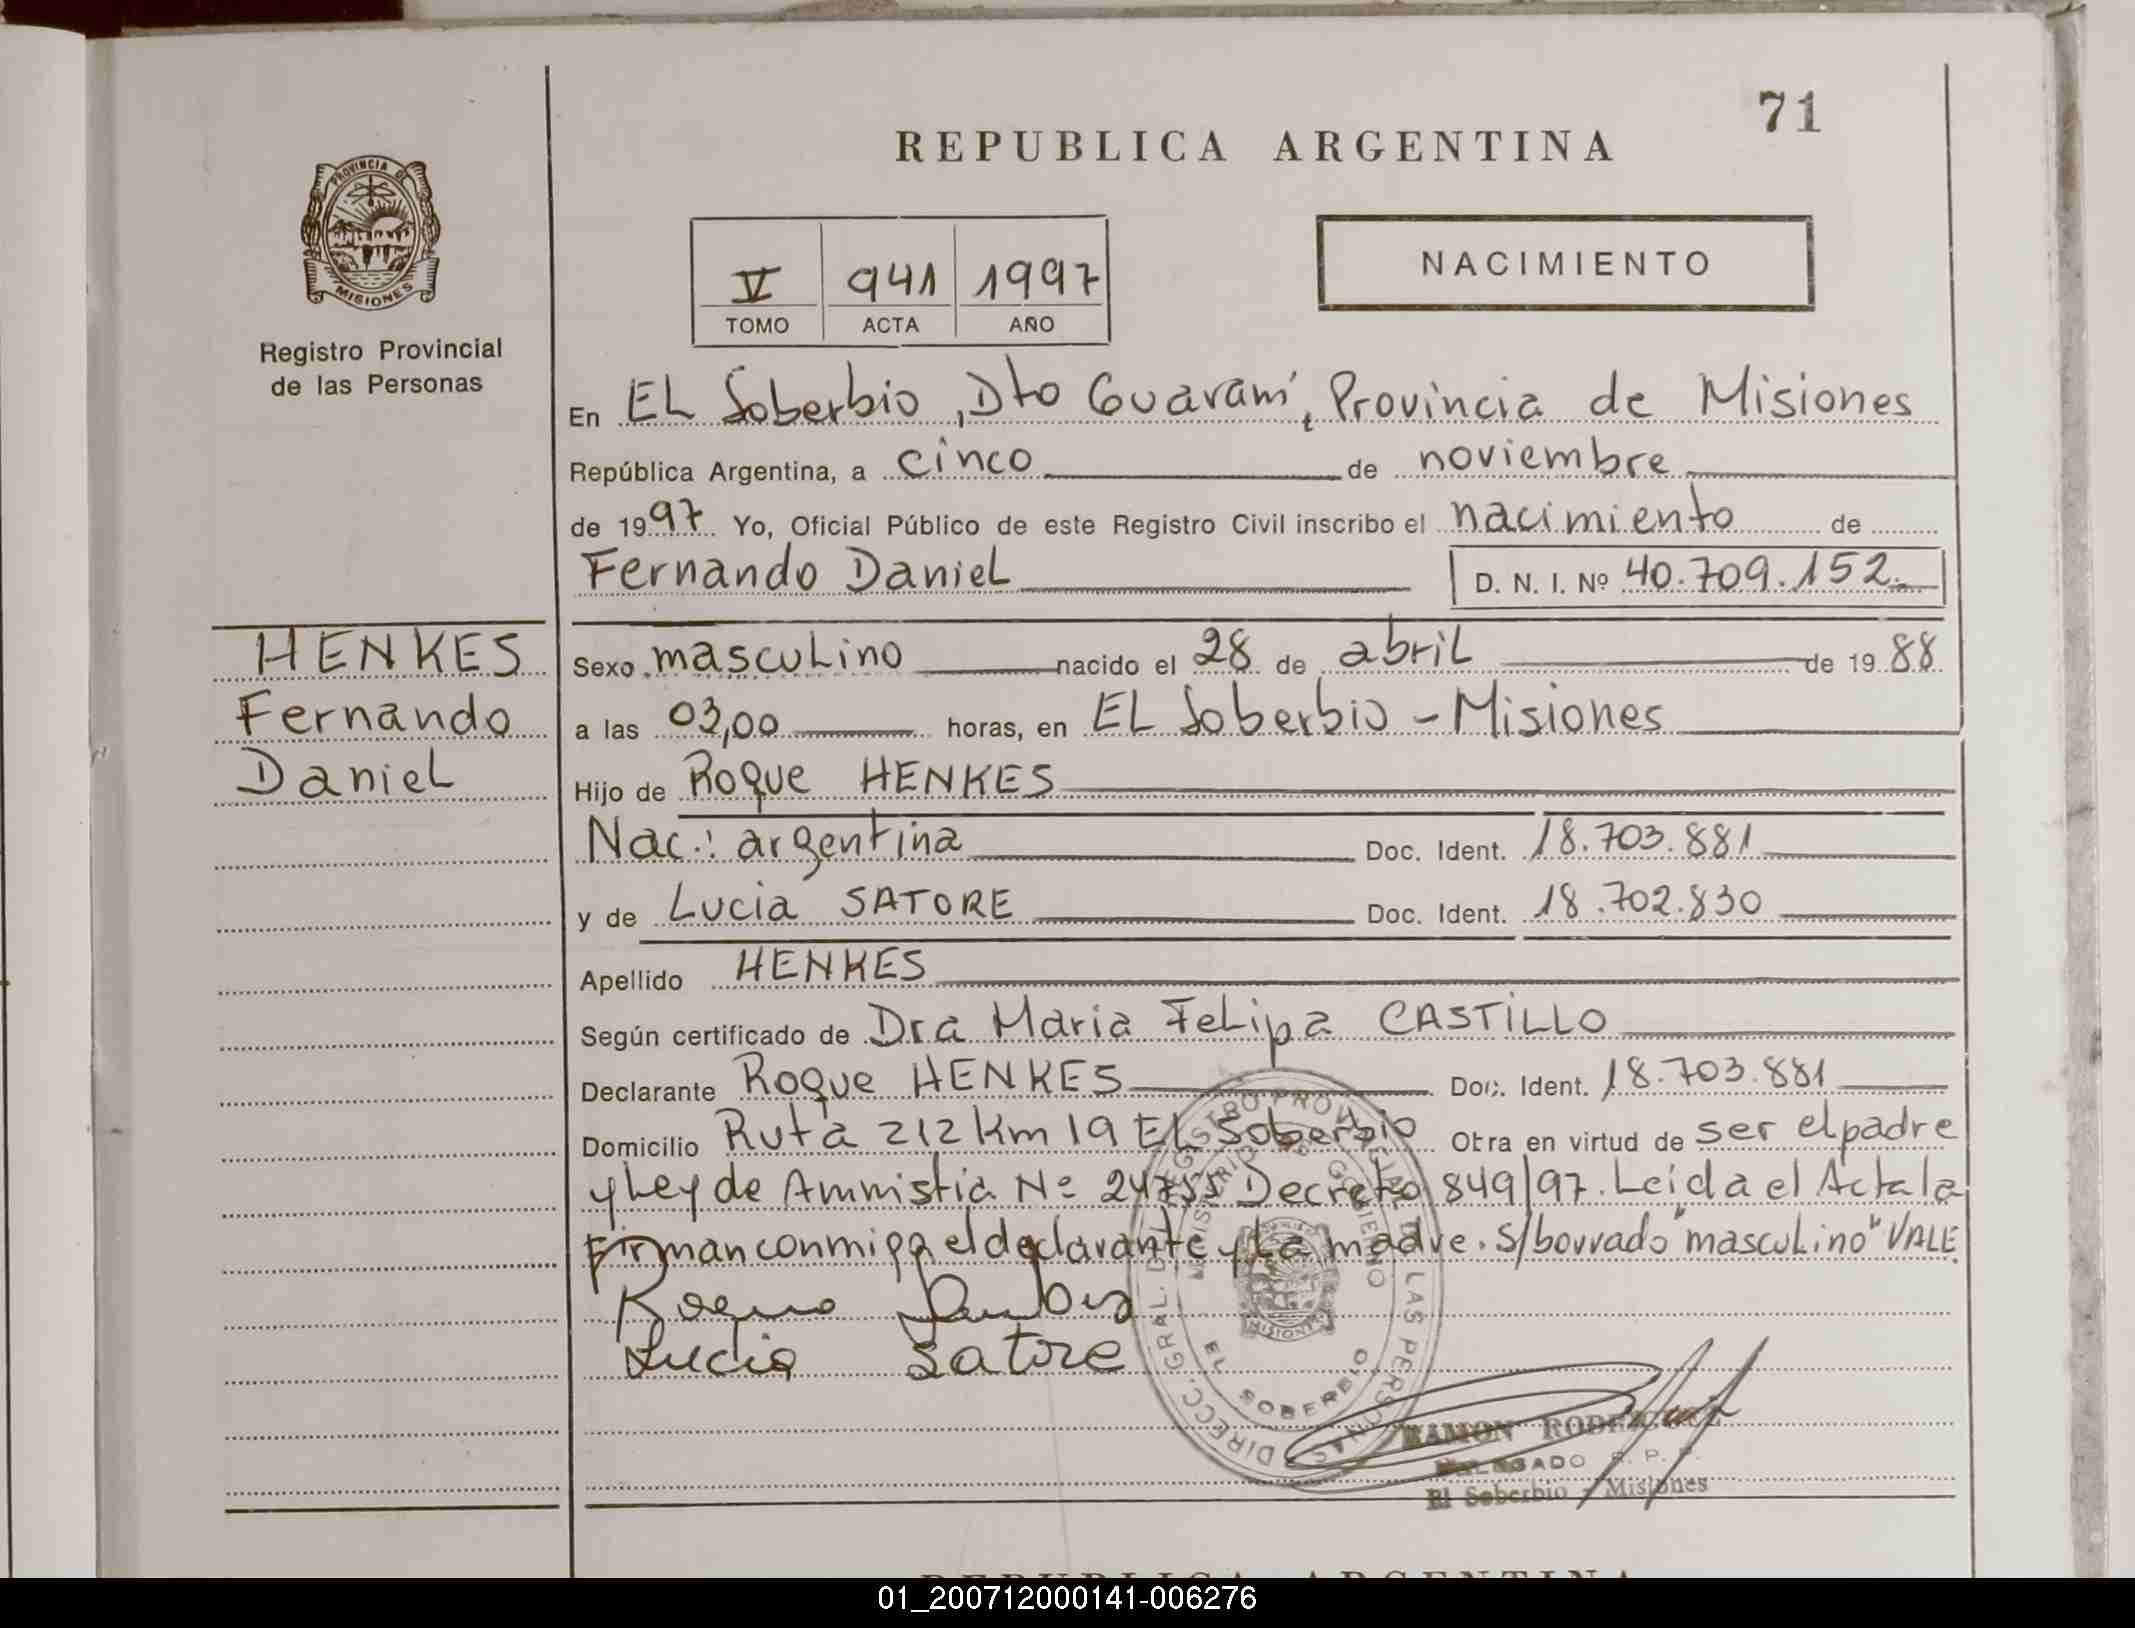 71
REPUBLICA ARGENTINA
PROVINCIA DE
MISIONES
Registro Provincial
de las Personas
V 941 1997
TOMO ACTA AÑO
NACIMIENTO
En EL Soberbio, Dto Guaraní, Provincia de Misiones
República Argentina, a cinco de noviembre
de 1997 Yo, Oficial Público de este Registro Civil inscribo el nacimiento de
Fernando Daniel D. N. I. Nº 40.709.152.
HENKES
Fernando
Daniel
Sexo masculino nacido el 28 de abril de 19 88
a las 03,00 horas, en EL Soberbio - Misiones
Hijo de Roque HENKES
Nac.: argentina Doc. Ident. 18.703.881
y de Lucia SATORE Doc. Ident. 18.702.830
Apellido HENKES
Según certificado de Dra Maria Felipa CASTILLO
Declarante Roque HENKES Doc. Ident. 18.703.881
Domicilio Ruta 212 Km 19 EL Soberbio Otra en virtud de ser el padre
y Ley de Amnistia Nº 24755 Decreto 849/97. Leída el Acta la
firman conmigo el declarante y La madre. S/borrado "masculino" VALE
Roque
Lucia Satore
DIRECC. GRAL. DEL REGISTRO PROVINCIAL DE LAS PERSONAS
MINISTERIO DE GOBIERNO
MISIONES
EL SOBERBIO
RAMON
DELEGADO R. P. P.
El Soberbio - Misiones
REPUBLICA ARGENTINA
01_200712000141-006276